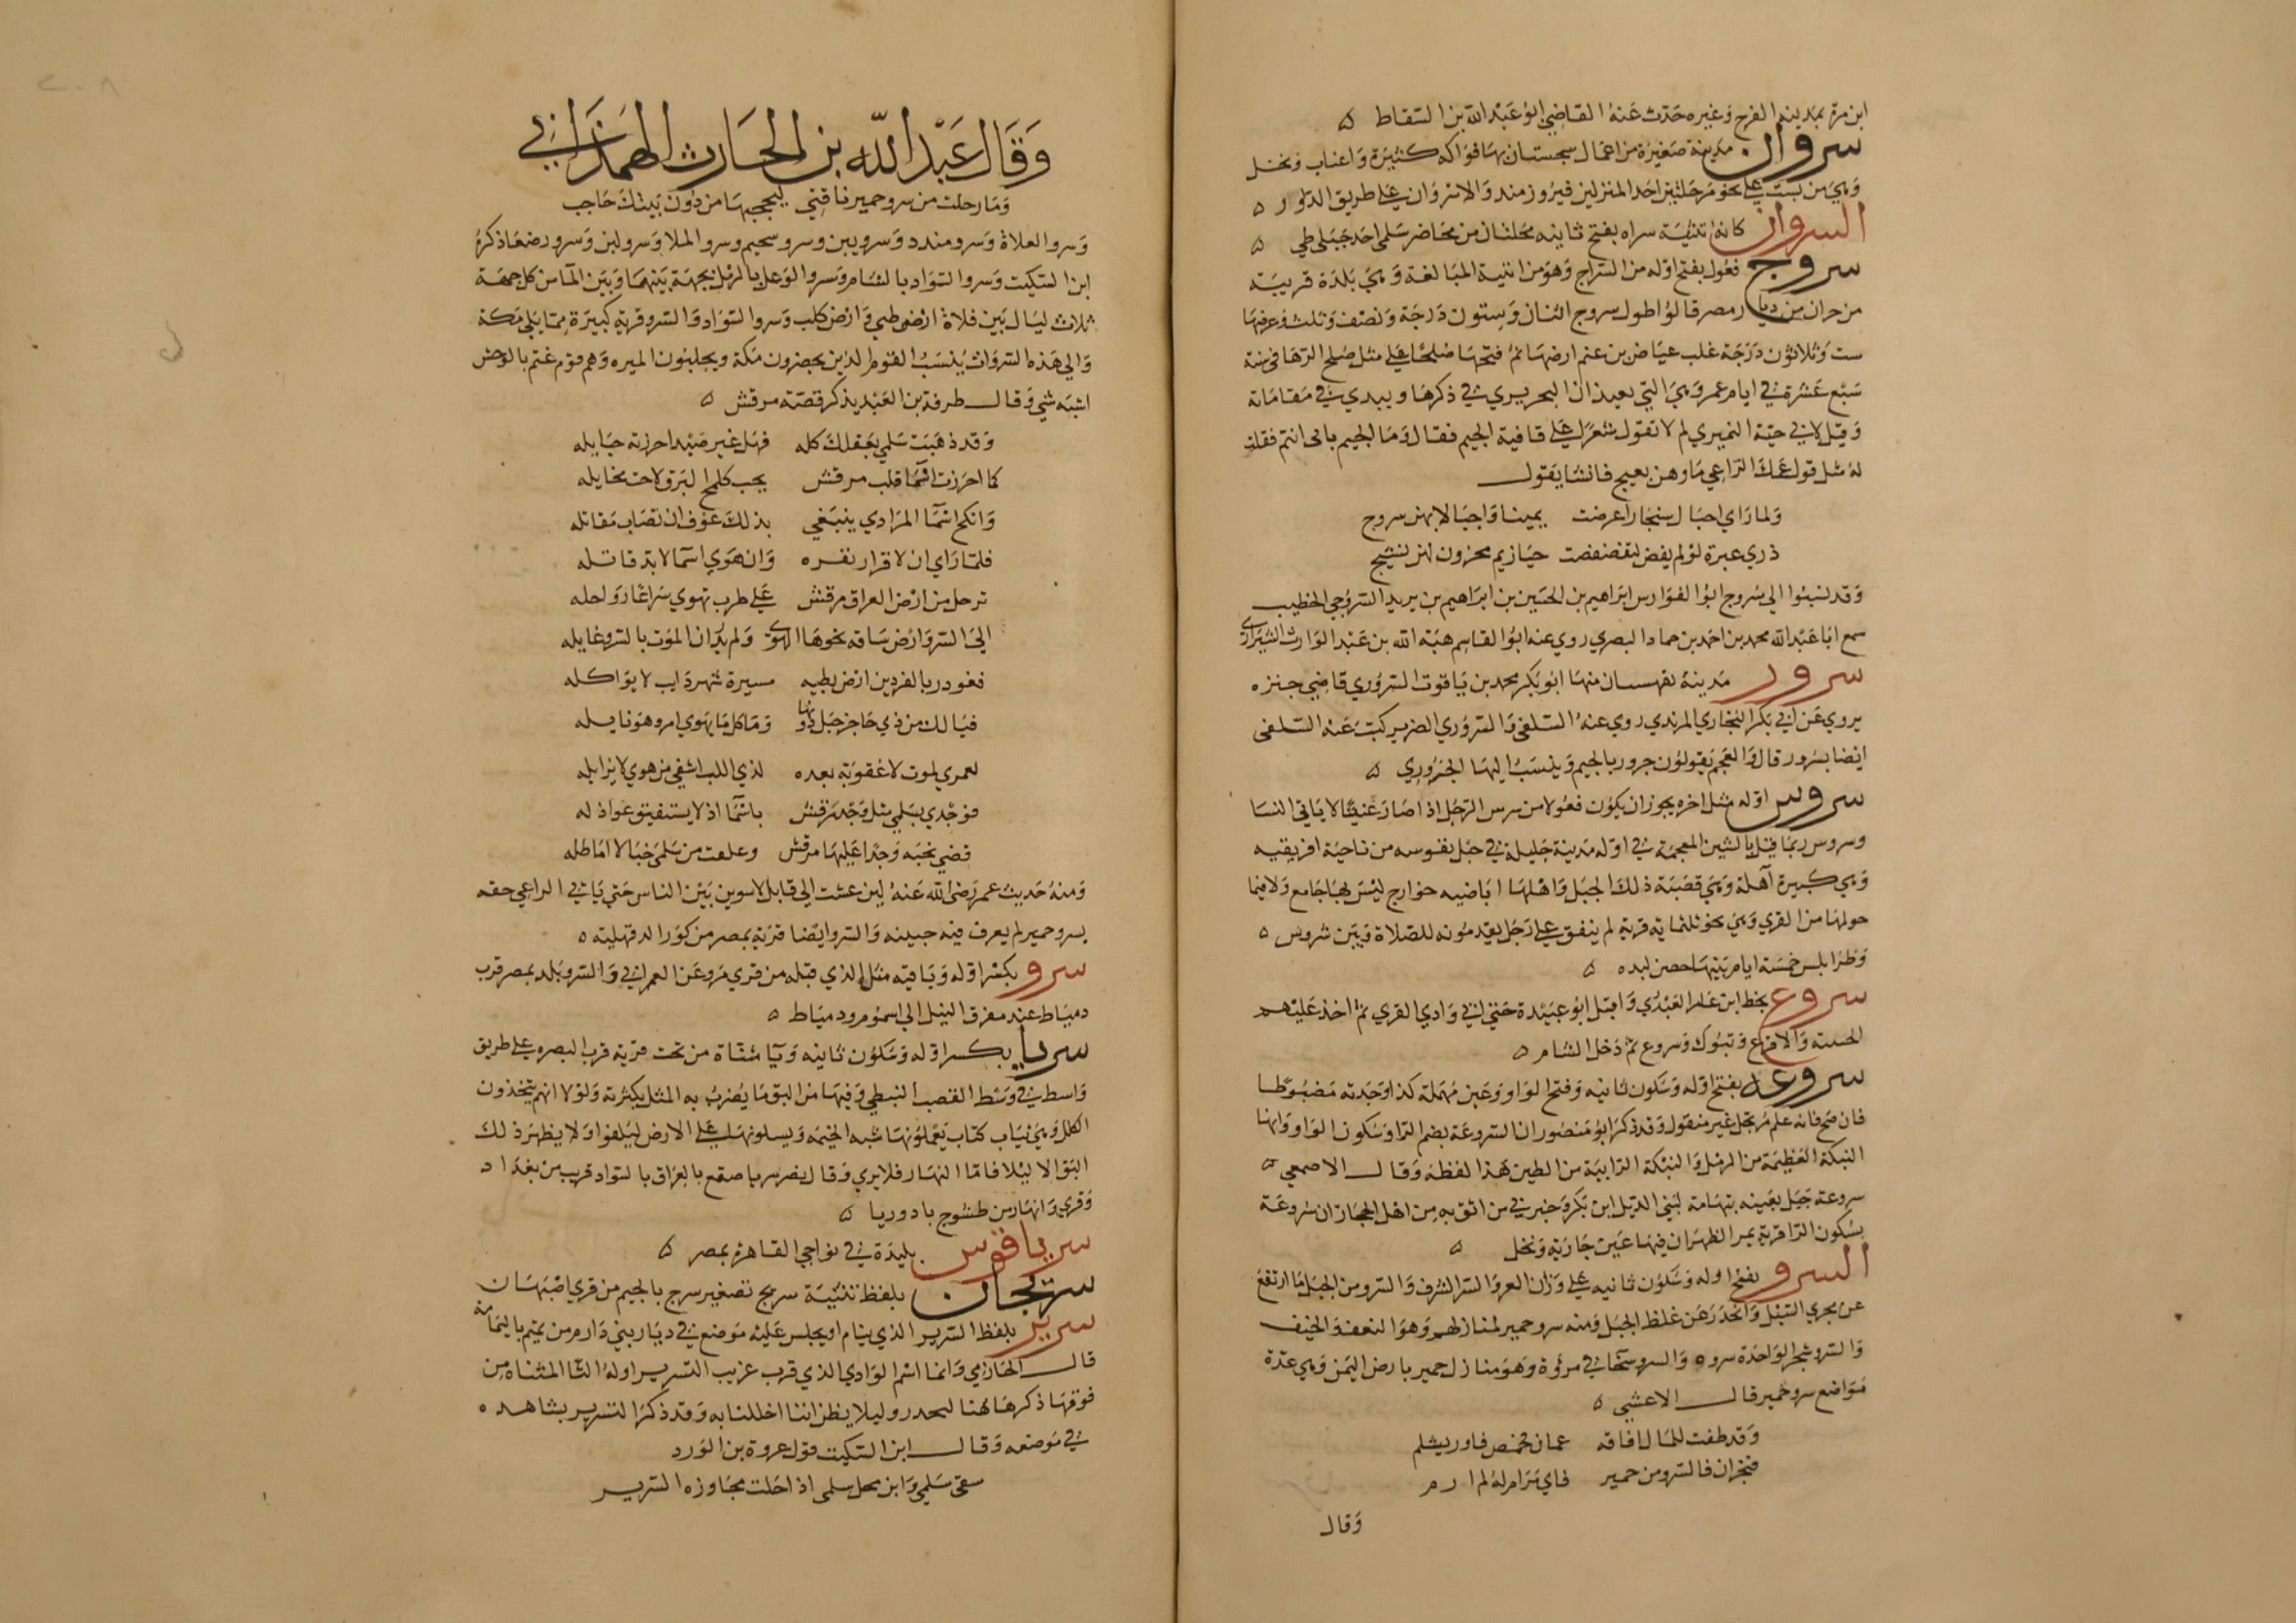 ابن مرة بمدينة الفرج وغيره حدث عنه القاضي ابو عبد الله بن السقاط ه
سروان مدينة صغيرة من اعمال سجستان بها فواكه كثيرة واعناب ونخل
وهي من بست على نحو مرحلتين احد المنزلين فيروزمند والاخر سروان على طريق الداور ه
السروان كانه تثنية سراه بفتح ثانيه محلتان من محاضر سلمى احد جبلي طي ه
سروج فعول بفتح اوله من السراج وهو من ابنية المبالغة وهي بلدة قريبة
من حران من ديار مصر قالوا طول سروج اثنان وستون درجة ونصف وثلث وعرضها
ست وثلاثون درجة غلب عياض بن غنم ارضها ثم فتحها صلحا على مثل صلح الرها في سنة
سبع عشرة في ايام عمر وهي التي يعيد الحريري في ذكرها ويبدي في مقاماته
وقيل لابي حية النميري لم لا تقول شعرا على قافية الجيم فقال وما الجيم بابي انتم فقلت
له مثل قول عمك الراعي ما وهن يعيج فانشا يقول
ولما راي اجبال سنجار اعرضت يمينا واجبالا بهن سروج
ذري عبرة لو لم يفض لتقضقضت حيازيم محزون لهن نشيج
وقد نسبوا الي سروج ابو الفوارس ابراهيم بن الحسين بن ابراهيم بن يريد السروجي الخطيب
سمع ابا عبد الله محمد بن احمد بن حماد البصري روي عنه ابو القاسم هبة الله بن عبد الوارث الشيرازي
سرور مدينة بقهستان منها ابو بكر محمد بن ياقوت السروري قاضي جنزه
يروي عن ابي بكر البخاري المرندي روي عنه السلفي والسروري الضرير كتبت عنه السلفي
ايضا بسرور قال والعجم يقولون جرور بالجيم وينسب اليها الجروري ه
سروس اوله مثل اخره يجوز ان يكون فعولا من سرس الرجل اذا صار عنينا لا ياتي النسا
وسروس ربما قيل بالشين المعجمة في اوله مدينة جليلة في جبل نفوسه من ناحية افريقيه
وهي كبيرة آهلة وهي قصبة ذلك الجبل واهلها اباضيه خوارج ليس بها جامع ولا فيما
حولها من القري وهي نحو ثلثماية قرية لم يتفق على رجل يقدمونه للصلاة وبين شروس ه
وطرابلس خمسة ايام بينها حصن لبده ه
سروع بخط ابن عامر العبدري واقبل ابو عبيدة حتى اتى وادي القري ثم اخذ عليهم
والاقرع وتبوك وسروع ثم دخل الشام ه
سروعة بفتح اوله وسكون ثانيه وفتح الواو وعين مهملة كذا وجدته مضبوطا
فان صح فانه علم مرتجل غير منقول وقد ذكر ابو منصور ان السروعة بضم الرا وسكون الواو وانها
النبكة العظيمة من الرمل والنبكة الرابية من الطين هذا لفظه وقال الاصمعي ه
سروعة جبل بعينه بتهامة لبني الديل ابن بكر وخبرني من اثق به من اهل الحجاز ان سروعة
بسكون الرا قرية بمر الظهران فيها عين جارية ونخل ه
السرو بفتح اوله وسكون ثانيه على وزن الغرو السرو الشرف والسرو من الجبل ما ارتفع
عن مجري السيل وانحدر عن غلظ الجبل ومنه سرو حمير لمنازلهم وهو النعف والخيف
والسرو شجر الواحدة سروه والسرو سخا في مروة وهو منازل حمير بارض اليمن وهي عدة
مواضع سرو حمير قال الاعشى ه
وقد طفت للمال افاقه عمان فحمص فاوريشلم
فنجران فالسرو من حمير فاي مرام له لم ارم
وقال
وقال عبد الله بن الحارث الهمذاني
وما رحلت من سرو حمير ناقتي ليحجبها من دون بيتك حاجب
وسرو العلاة وسرو مندد وسرو بين وسرو سحيم وسرو الملا وسرو لبن وسرو رضعا ذكره
ابن السكيت وسرو السواد بالشام وسرو الوعل بالرمل بجهمة بينهما وبين الما من كل جهة
ثلاث ليال بين فلاة ارض طي وارض كلب وسرو السواد والسرو قرية كبيرة مما يلي مكة
والي هذه السروات ينسب القوم الذين يحضرون مكة ويجلبون الميره وهم قوم غتم بالوحش
اشبه شي وقال طرفة بن العبد يذكر قصة مرقش ه
وقد ذهبت سلمى بعقلك كله فهل غير صيد احرزته حبايله
كما احرزت اسما قلب مرقش بحب كلمح البرق لاحت مخايله
وانكح اسما المرادي يبتغي بذلك عوف ان تصاب مقاتله
فلما راي ان لا قرار نقره وان هوي اسما لا بد قاتله
ترحل من ارض العراق مرقش على طرب تهوي سراعا رواحله
الى السرو ارض ساقه نحوها الهوى ولم يدر ان الموت بالسرو غايله
فغودر بالفردين ارض بطيه مسيرة شهر دايب لا يواكله
فيا لك من ذي حاجز حيل دونها وما كل ما يهوي امرو هو نايله
لعمري لموت لا عقوبة بعده لذي اللب اشفي من هوي لا يزايله
فوجدي بسلمى مثل وجد مرقش باسما اذ لا يستفيق عواذله
قضي نحبه وجدا عليها مرقش وعلقت من سلمى خبالا اماطله
ومنه حديث عمر رضي الله عنه لين عشت الي قابل لاسوين بين الناس حتي ياتي الراعي حقه
بسرو حمير لم يعرف فيه جبينه والسرو ايضا قرية بمصر من كور الدقهلية ه
سرو بكسر اوله وباقيه مثل الذي قبله من قري مرو عن العمراني والسرو بلد بمصر قرب
دمياط عند مفرق النيل الي اشموم ودمياط ه
سريا بكسر اوله وسكون ثانيه ويا مثناة من تحت قرية قرب البصره على طريق
واسط في وسط القصب النبطي وفيها من البق ما يضرب به المثل بكثرته ولولا انهم يتخذون
الكلل وهي ثياب كتاب يعملونها شبه الخيمة ويسبلونها على الارض ليلفوا ولا يظهر ذلك
البق الا ليلا فاما النهار فلا يري وقال نصر سريا صقع بالعراق بالسواد قريب من بغداد
وقري وانهار من طسوج بادوريا ه
سرياقوس بليدة في نواحي القاهرة بمصر ه
سريجان بلفظ تثنية سريج تصغير سرج بالجيم من قري اصبهان
سرير بلفظ السرير الذي ينام او يجلس عليه موضع في ديار بني دارم من تميم باليمامة
قال الحازمي وانما اسم الوادي الذي قرب غريب التسرير اوله التا المثناة من
فوقها ذكرها هنا ليحذر وليلا يظن اننا اخللنا به وقد ذكر التسرير بشاهده
في موضعه وقال ابن السكيت قول عروة بن الورد
سقى سلمى واين محل سلمى اذا حلت مجاوزه السرير